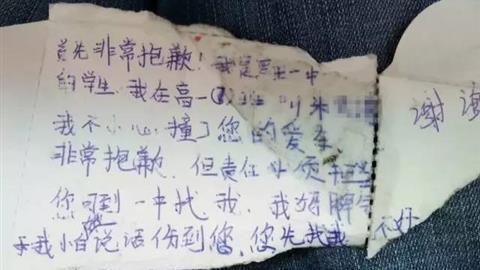 首先非常抱歉！我是一中
的学生,我在高一班 叫朱
我不小心撞了您的爱车
非常抱歉,但责任必须担
您可到一中找我,我妈脾气
不好
我怕她说话伤到您,您先找我
谢谢